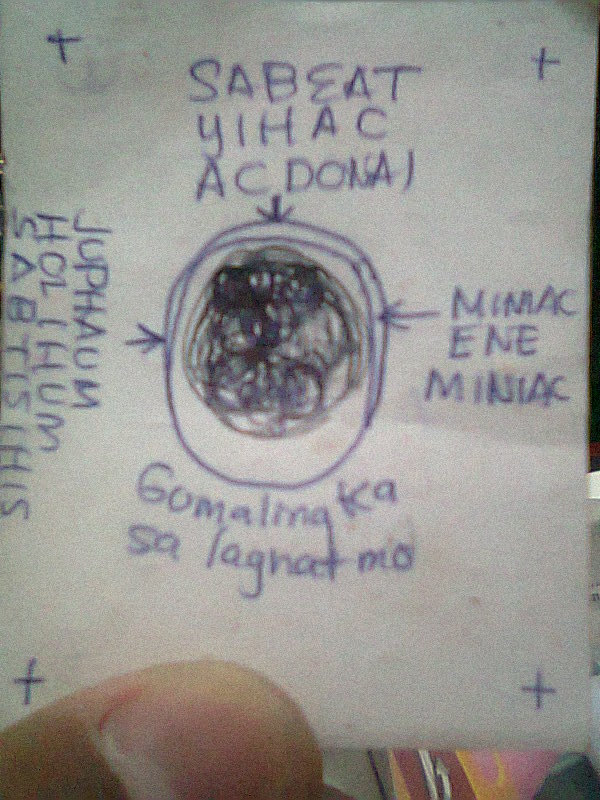 SABEAT
YIHAC
ACDONAI
JUPHAUM
HOLIHUM
SABTISIHIS
MIMAC
ENE
MINIAC
Gumaling ka
sa lagnat mo